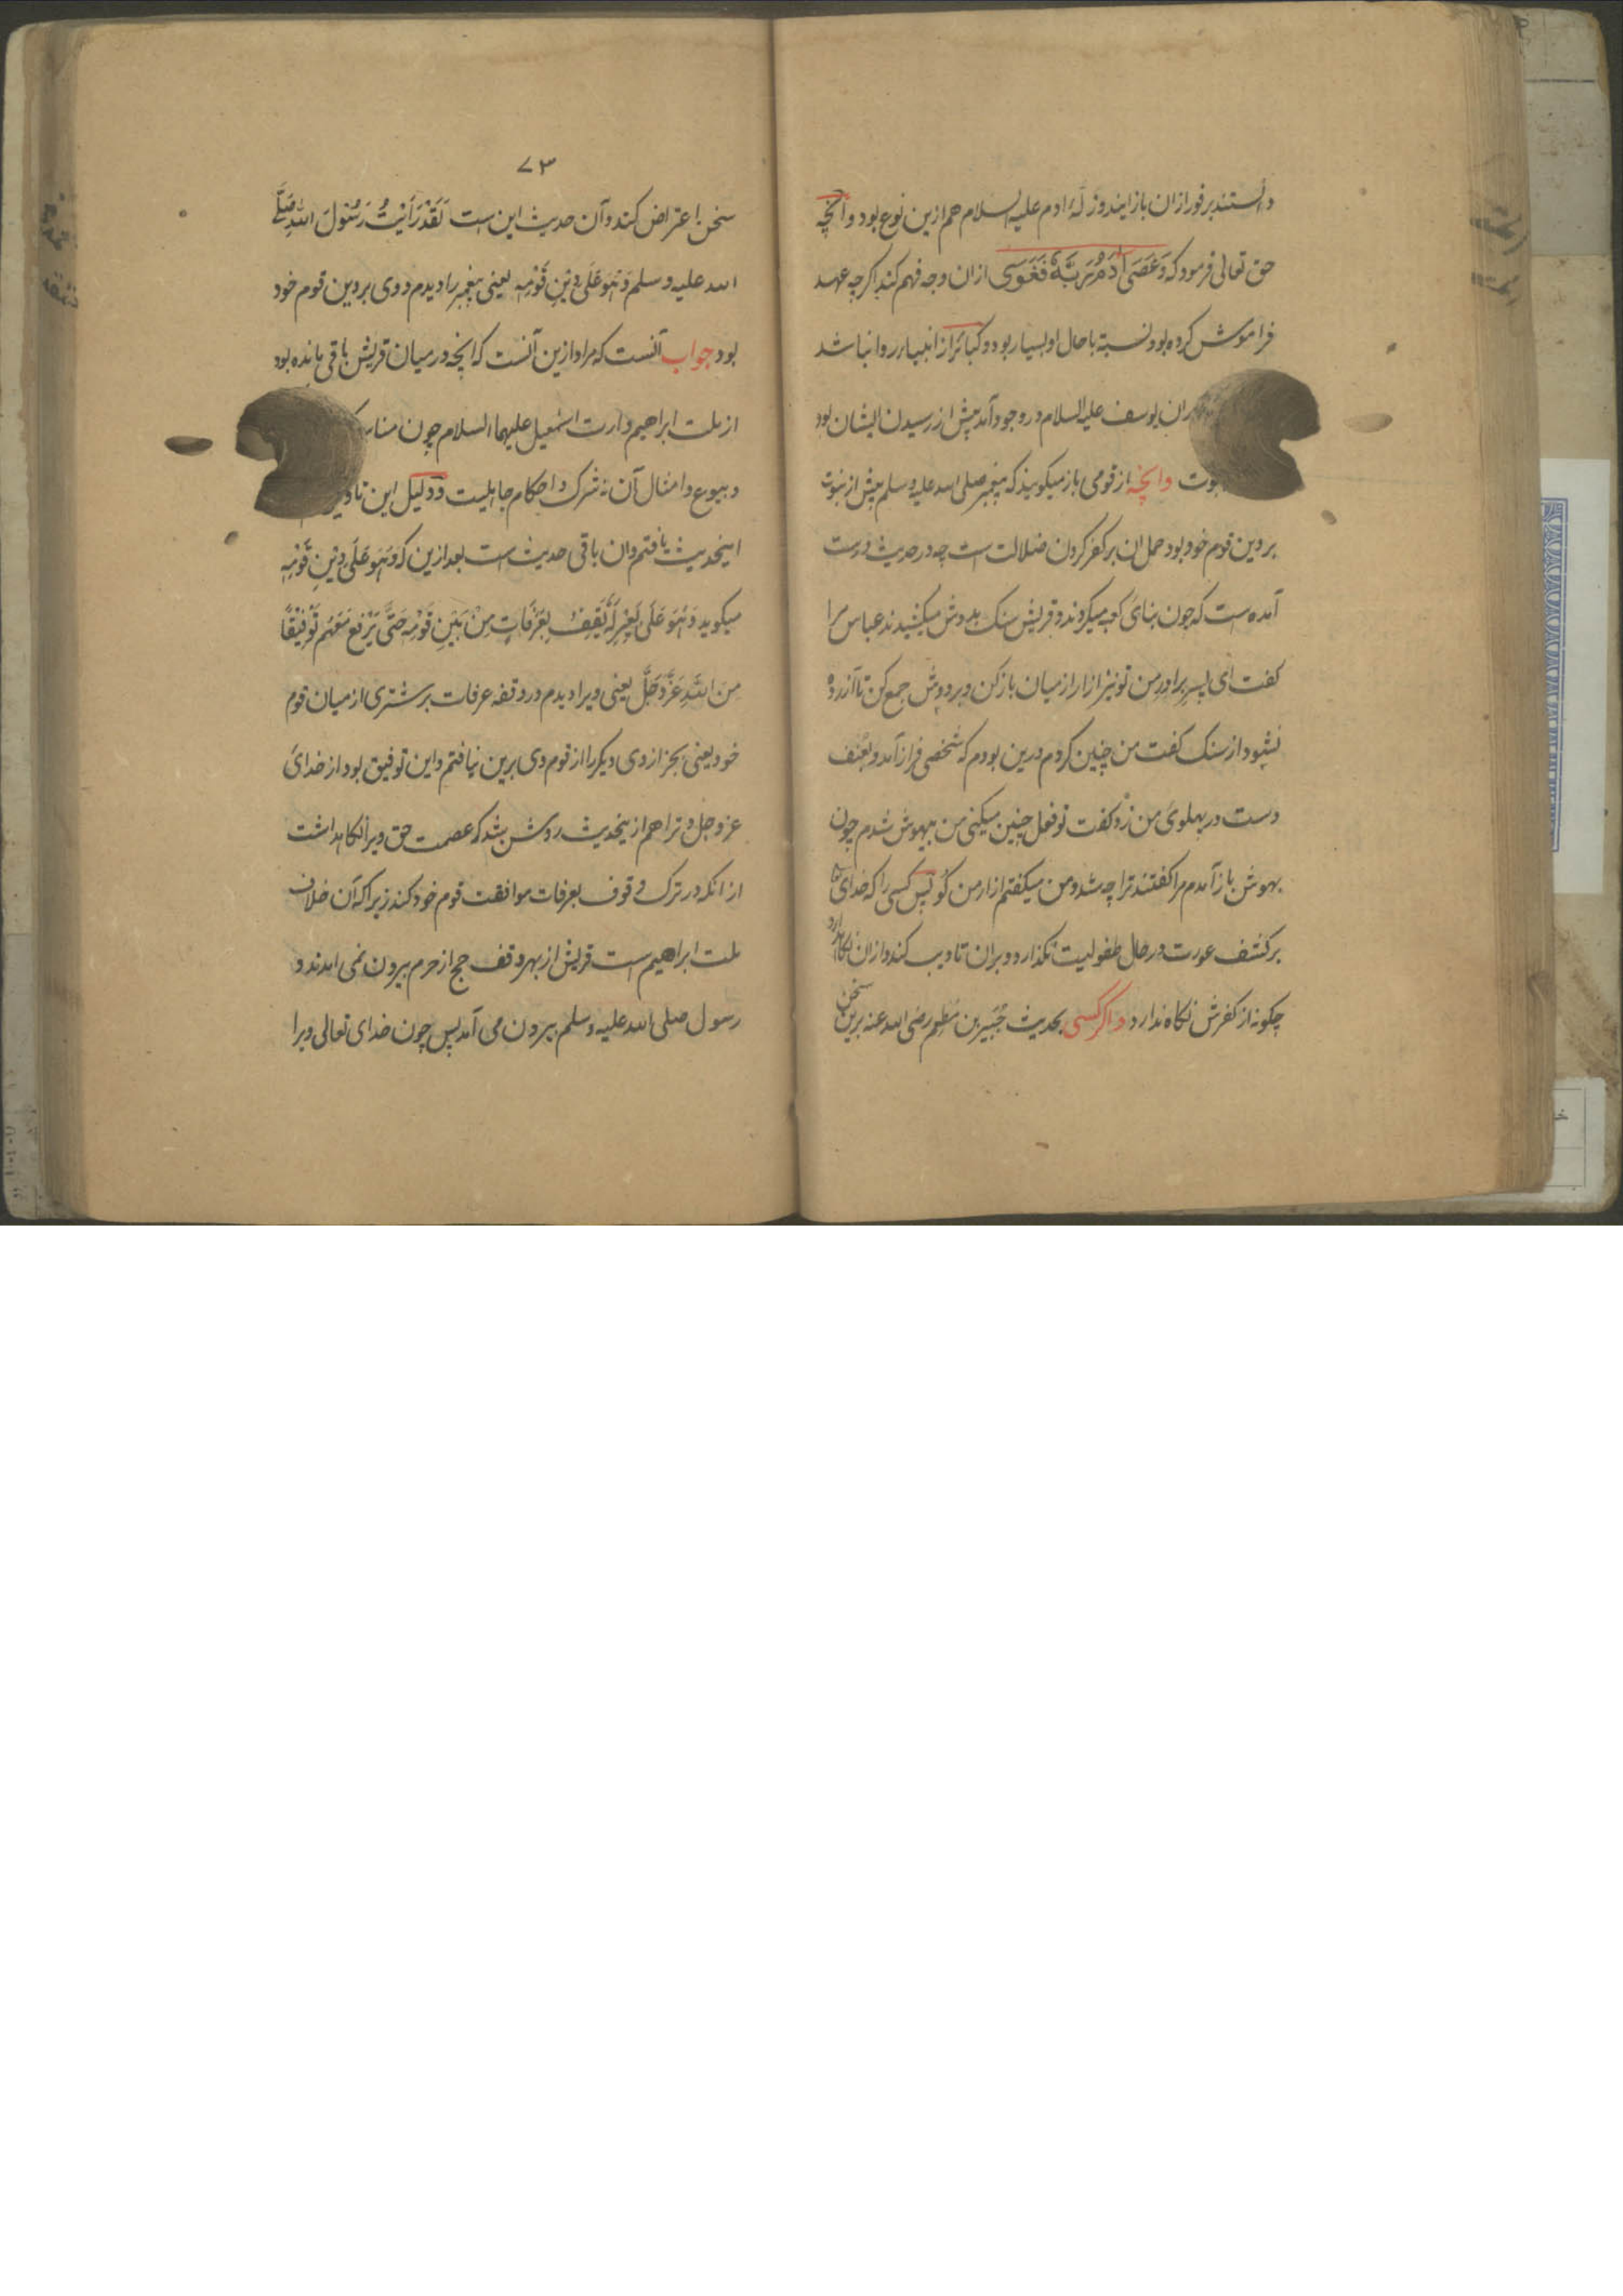 دانستند بر فور ازان باز ایند و زلّهٔ ادم علیه السلام هم ازین نوع بود و آنچه
حق تعالی فرمود که وَعَصَیٰ اٰدَمُ رَبَّهٗ فَغَوَیٰ ازان وجه فهم کنند اکرچه عهد
فراموش کرده بود نسبة با حال او بسیار بود و کبائر از انبیاء روا نباشد
ران یوسف علیه السلام در وجود آمد پیش از رسیدن ایشان بود
بوت وانچه از قومی باز میکویند که پیغمبر صلی الله علیه وسلم پیش از نبوت
بر دین قوم خود بود حمل ان بر کفر کردن ضلالت است چه در حدیث درست
آمده است که چون بنای کعبه میکردند و قریش سنک بدوش میکشیدند عباس مرا
کفت ای پسر برادر من تو نیز ازار از میان باز کن و بر دوش جمع کن تا آزرده
نشود از سنک کفت من چنین کردم درین بودم که شخصی فراز آمد و بعنف
دست در پهلوی من زد و کفت تو فعل چنین میکنی من بیهوش شدم چون
بهوش باز آمدم مرا کفتند ترا چه شد و من میکفتم ازار من کو پس کسی را که خدای
بر کشف عورت در حال طفولیت نکذارد و بران تادیب کند و ازان نکاه دارد
چکونه از کفرش نکاه ندارد واکر کسی بحدیث جُبَیر بن مُطعِم رضی الله عنه برین سخن
۷۳
سخن اعتراض کند و آن حدیث این ست لَقَدْ رَاَیْتُ رَسُولَ اللهِ صَلَّی
الله علیه وسلم وَهُوَ عَلَی دِینِ قَوْمِهِ یعنی پیغمبر را دیدم و وی بر دین قوم خود
بود جواب آنست که مراد ازین آنست که انچه در میان قریش باقی مانده بود
از ملت ابراهیم وارث اسمعیل علیهما السلام چون مناسک
و بیوع و امثال آن نه شرک و احکام جاهلیت و دلیل این تاویل
اینحدیث یافتم وان باقی حدیث ست بعد ازین که وَهُوَ عَلَی دِینِ قَوْمِهِ
میکوید وَهُوَ عَلَی بَعِیرٍ لَهُ یَقِفُ بِعَرَفَاتٍ مِنْ بَیْنِ قَوْمِهِ حَتَّی یَدْفَعَ مَعَهُمْ تَوْفِیْقًا
مِنَ اللهِ عَزَّ وَجَلَّ یعنی ویرا دیدم در وقفه عرفات بر شتری از میان قوم
خود یعنی بجز از وی دیکر را از قوم وی برین نیافتم و این توفیق بود از خدای
عز وجل و ترا هم از ینحدیث روشن شد که عصمت حق ویرا نکاهداشت
از انکه در ترک وقوف بعرفات موافقت قوم خود کند زیرا که آن خلاف
ملت ابراهیم ست قریش از بهر وقف حج از حرم بیرون نمی امدند و
رسول صلی الله علیه وسلم بیرون می آمد پس چون خدای تعالی ویرا